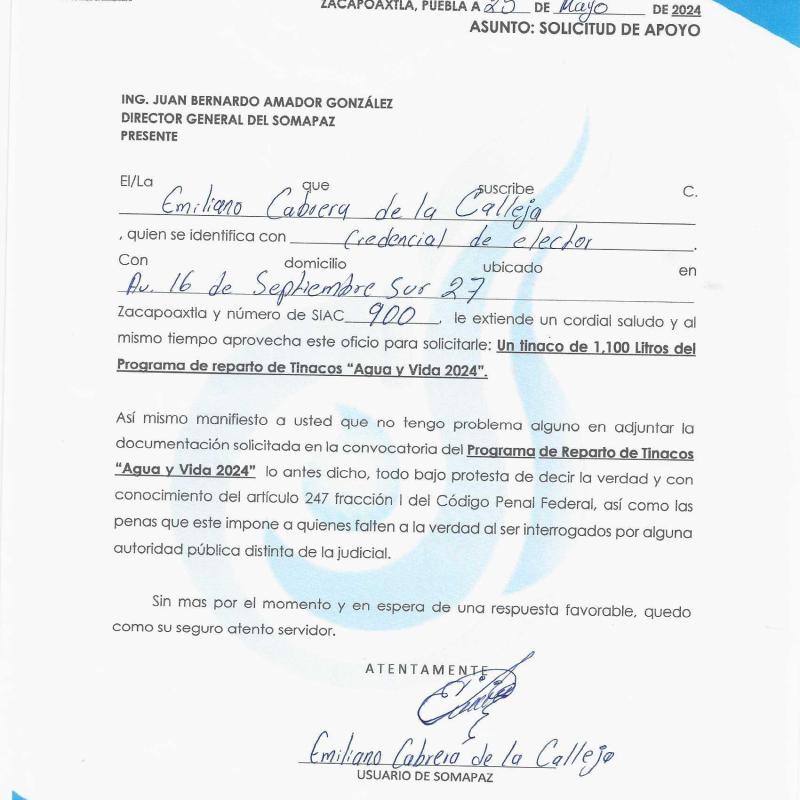 ZACAPOAXTLA, PUEBLA A 25 DE Mayo DE 2024
ASUNTO: SOLICITUD DE APOYO
ING. JUAN BERNARDO AMADOR GONZÁLEZ
DIRECTOR GENERAL DEL SOMAPAZ
PRESENTE
El/La que suscribe C.
Emiliano Cabrera de la Calleja
, quien se identifica con Credencial de elector.
Con domicilio ubicado en
Av. 16 de Septiembre Sur 27
Zacapoaxtla y número de SIAC 900, le extiende un cordial saludo y al
mismo tiempo aprovecha este oficio para solicitarle: Un tinaco de 1,100 Litros del
Programa de reparto de Tinacos "Agua y Vida 2024".
Así mismo manifiesto a usted que no tengo problema alguno en adjuntar la
documentación solicitada en la convocatoria del Programa de Reparto de Tinacos
"Agua y Vida 2024" lo antes dicho, todo bajo protesta de decir la verdad y con
conocimiento del artículo 247 fracción I del Código Penal Federal, así como las
penas que este impone a quienes falten a la verdad al ser interrogados por alguna
autoridad pública distinta de la judicial.
Sin mas por el momento y en espera de una respuesta favorable, quedo
como su seguro atento servidor.
ATENTAMENTE
Emiliano Cabrera de la Calleja
USUARIO DE SOMAPAZ